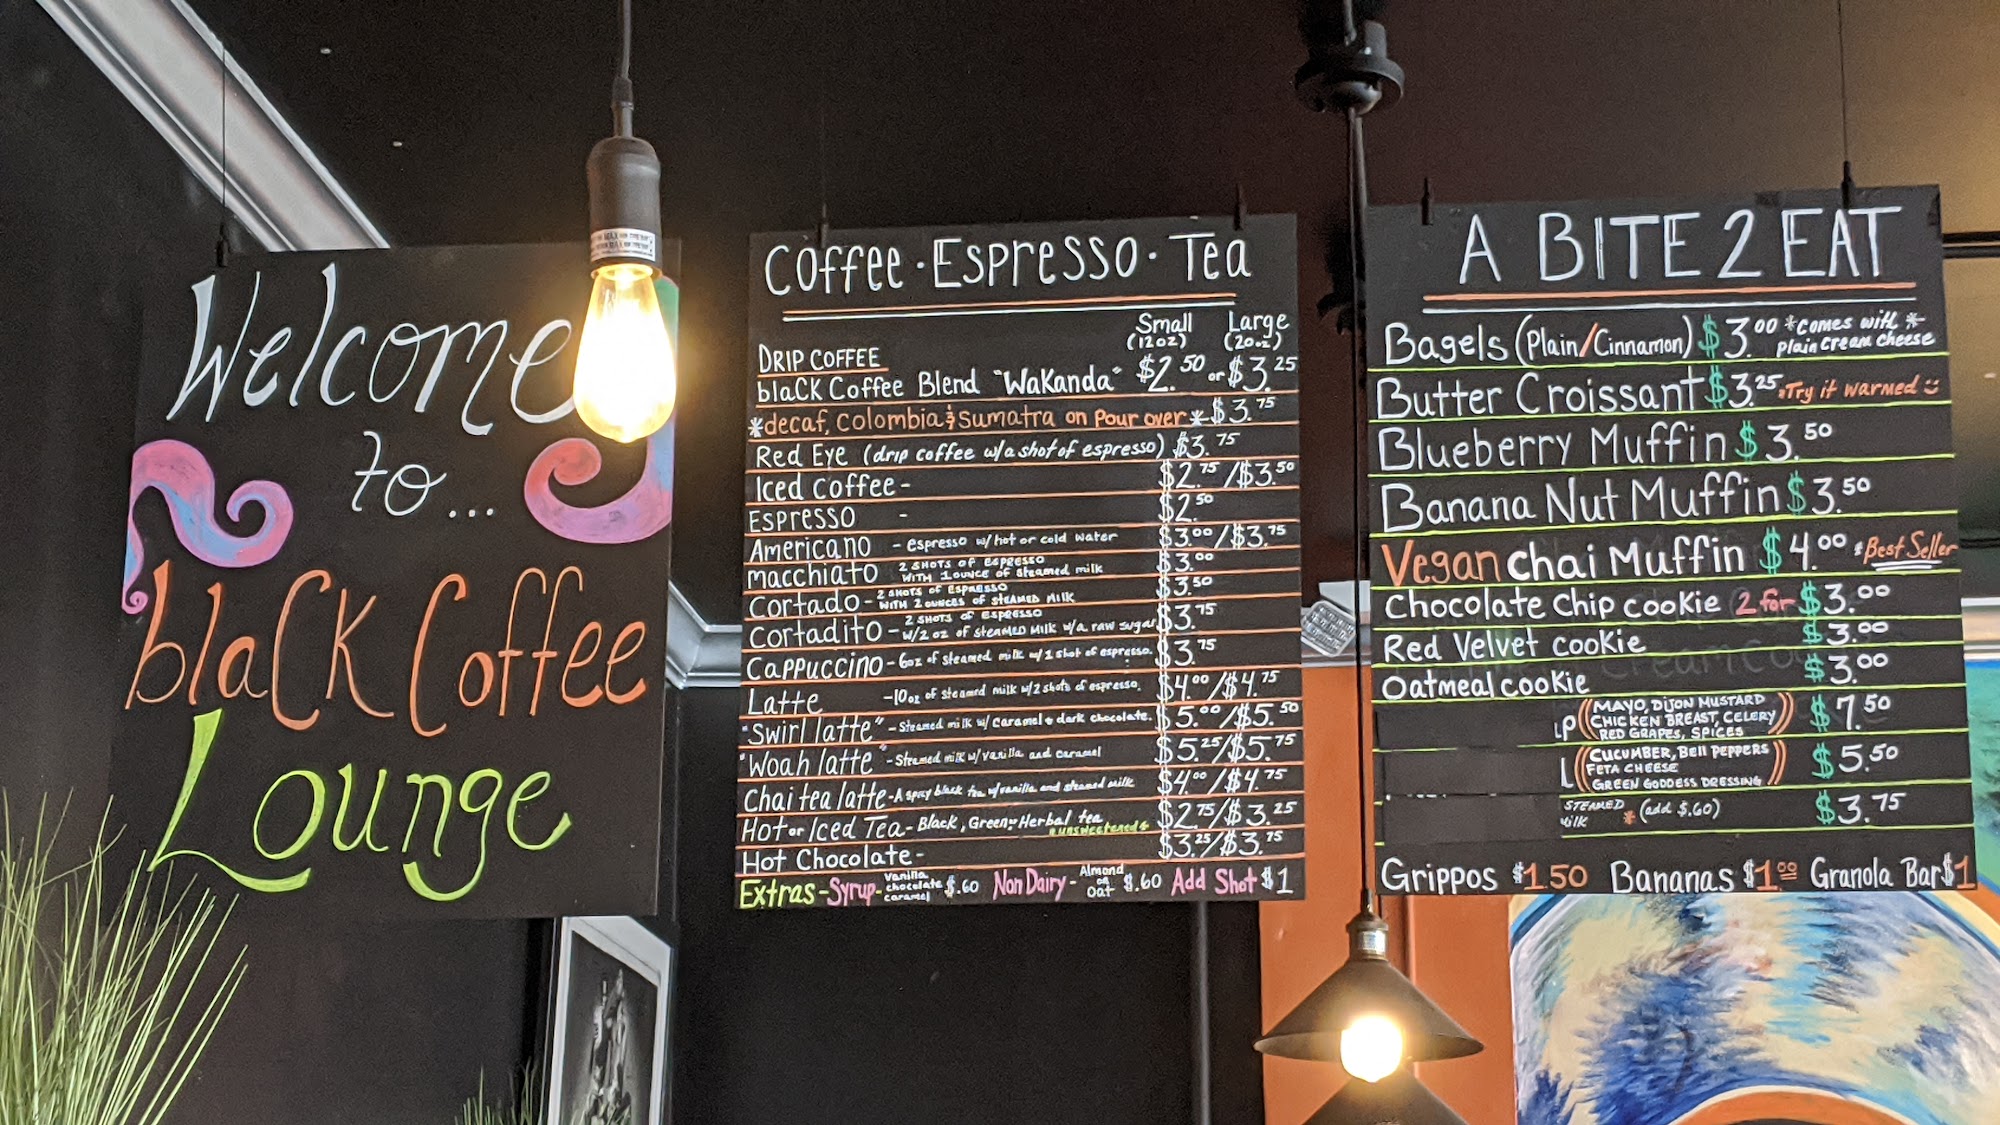 Welcome
to...
blaCK Coffee
Lounge
Coffee · Espresso · Tea
Small Large
(12oz) (20oz)
DRIP COFFEE
blaCK Coffee Blend "WaKanda" $2.50 or $3.25
*decaf, Colombia & Sumatra on Pour over* $3.75
Red Eye (drip coffee w/a shot of espresso) $3.75
Iced Coffee- $2.75/$3.50
Espresso - $2.50
Americano - espresso w/hot or cold water $3.00/$3.75
macchiato 2 SHOTS OF ESPRESSO WITH 1 OUNCE OF steamed milk $3.00
Cortado- 2 SHOTS OF ESPRESSO WITH 2 OUNCES OF STEAMED MILK $3.50
Cortadito- 2 SHOTS OF ESPRESSO w/2 oz of STEAMED MILK w/a raw sugar $3.75
Cappuccino-6oz of steamed milk w/1 shot of espresso. $3.75
Latte -10oz of steamed milk w/2 shots of espresso. $4.00/$4.75
"Swirl latte"-Steamed milk w/ caramel + dark chocolate. $5.00/$5.50
"Woah latte"-Steamed milk w/vanilla and caramel $5.25/$5.75
Chai tea latte-A spicy black tea w/vanilla and steamed milk $4.00/$4.75
Hot or Iced Tea-Black, Green or Herbal tea *unsweetened* $2.75/$3.25
Hot Chocolate- $3.25/$3.75
Extras-Syrup- Vanilla chocolate caramel $.60 Non Dairy- Almond or Oat $.60 Add Shot $1
A BITE 2 EAT
Bagels (Plain/Cinnamon) $3.00 *comes with* plain cream cheese
Butter Croissant $3.25 *Try it warmed
Blueberry Muffin $3.50
Banana Nut Muffin $3.50
Vegan Chai Muffin $4.00 *Best Seller
Chocolate Chip cookie 2 for $3.00
Red Velvet cookie $3.00
Oatmeal cookie $3.00
MAYO, DIJON MUSTARD
CHICKEN BREAST, CELERY $7.50
RED GRAPES, SPICES
CUCUMBER, Bell peppers
FETA CHEESE $5.50
GREEN GODDESS DRESSING
STEAMED milk *(add $.60) $3.75
Grippos $1.50 Bananas $1.00 Granola Bar $1